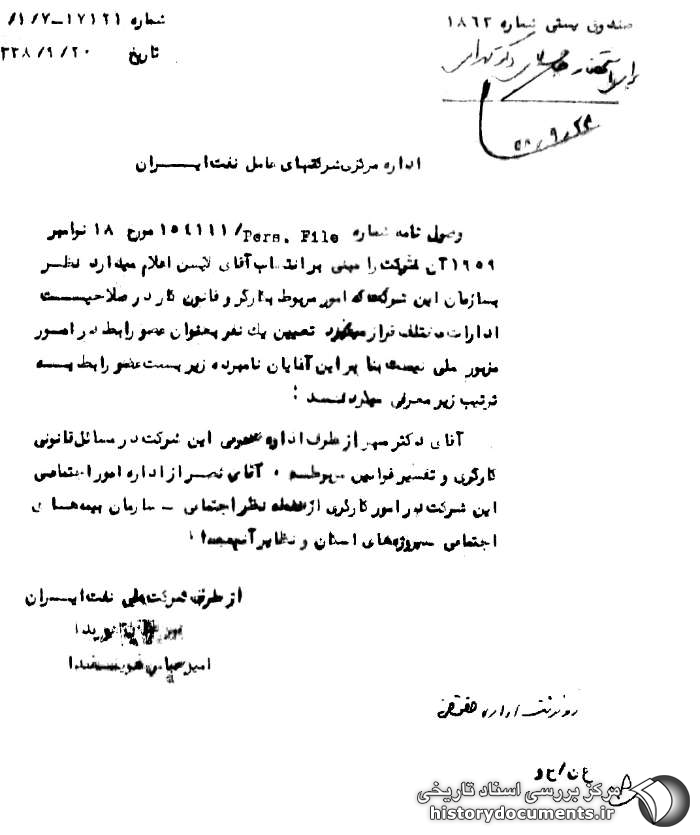 شماره ۱۷۱۲۱-۱/۷/
تاریخ ۳۳۸/۹/۲۰
صندوق پستی شماره ۱۸۶۳
۵۸/۹/۲۴
اداره مرکزی شرکتهای عامل نفت ایــــران
وصول نامه شماره Pers. File/۱۵۴۱۱۱ مورخ ۱۸ نوامبر
۱۹۵۹ آن شرکت را مبنی بر انتصاب آقای اعلام میدارد نظر
بسازمان این شرکت که امور مربوط بکارگر و قانون کار در صلاحیت
ادارات مختلف قرار میگیرد تعیین یك نفر بعنوان عضو رابط در امور
مزبور عملی نیست بنا بر این آقایان نامبرده زیر بسمت عضو رابط بــه
ترتیب زیر معرفی میگردنــد :
آقای دکتر سپهر از طرف اداره حقوقی این شرکت در مسائل قانونی
کارگری و تفسیر قوانین مربوطه ، آقای نصر از اداره امور اجتماعی
این شرکت در امور کارگری از نقطه نظر اجتماعی - سازمان بیمه هــای
اجتماعی و نظایر آنها
از طرف شرکت ملی نفت ایــران
امیر عباس هویــدا
رونوشت اداره حقوقی
ع ن/ح و
مرکز بررسی اسناد تاریخی
historydocuments.ir